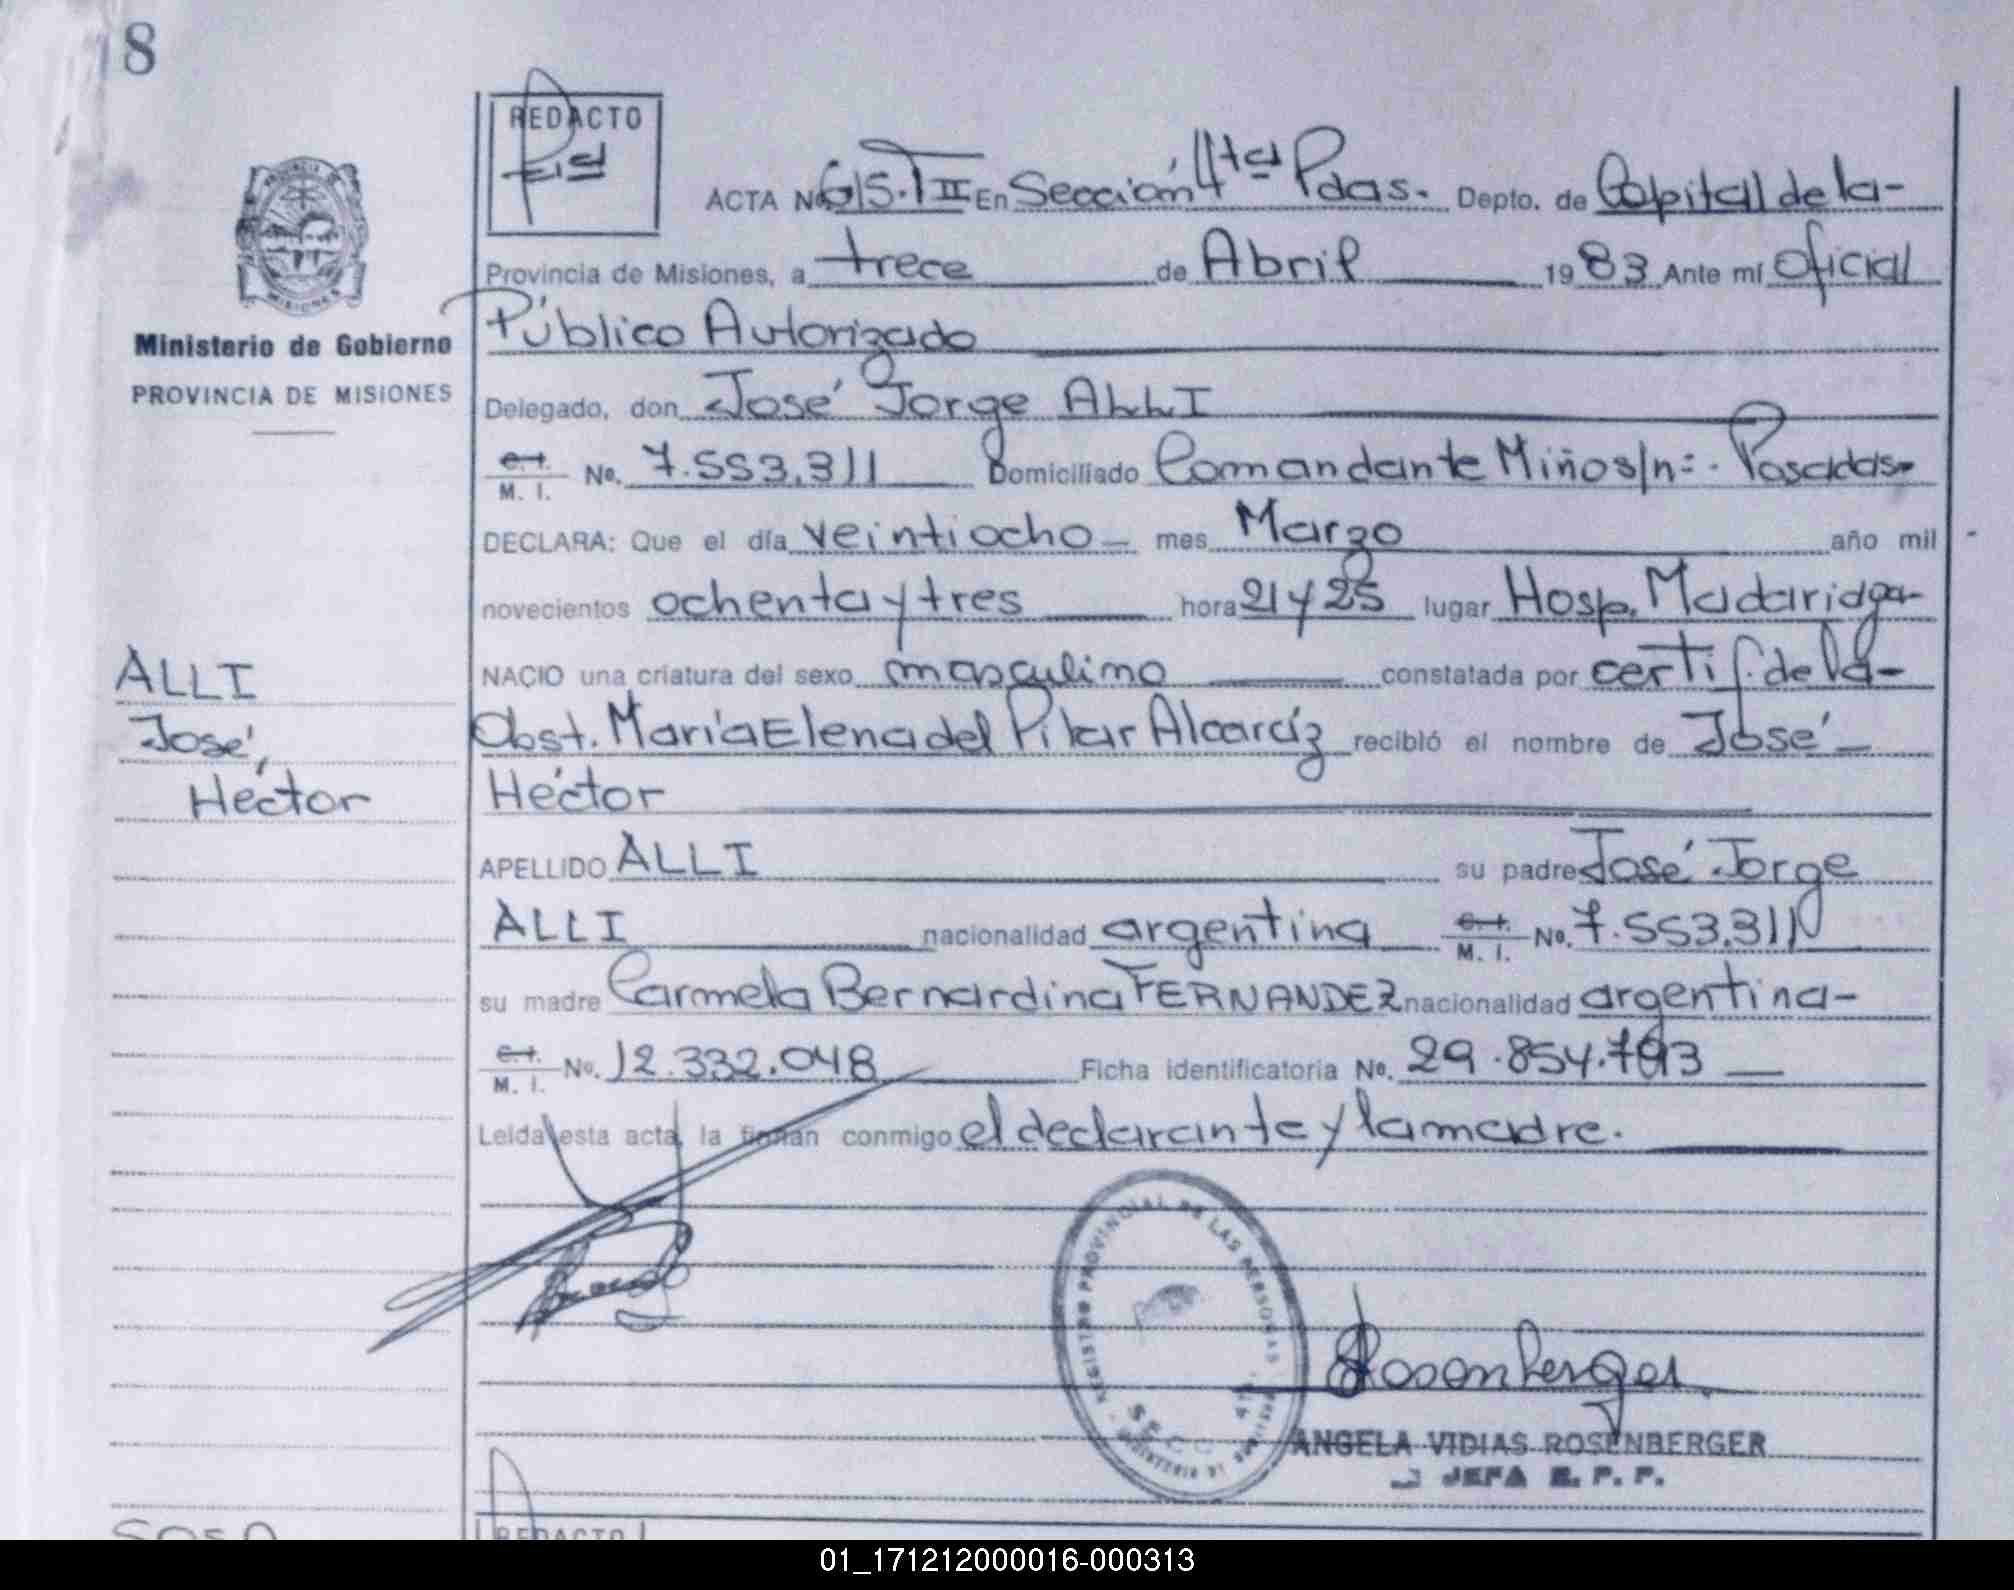 8
REDACTO
PROVINCIA DE
MISIONES
Ministerio de Gobierno
PROVINCIA DE MISIONES
ACTA No 615.TII En Sección 4ta Pdas. Depto. de Capital de la-
Provincia de Misiones, a trece de Abril 1983 Ante mí oficial
Público Autorizado
Delegado, don José Jorge ALLI
C.I. M. I. No. 7.553.311 Domiciliado Comandante Miño s/n=. Posadas-
DECLARA: Que el día veintiocho - mes Marzo año mil
novecientos ochenta y tres hora 21 y 25 lugar Hosp. Madariaga-
NACIO una criatura del sexo masculino constatada por certif. de la-
Obst. María Elena del Pilar Alcaráz recibló el nombre de José -
Héctor
ALLI
José,
Héctor
APELLIDO ALLI su padre José Jorge
ALLI nacionalidad argentina C.I. M. I. No. 7.553.311
su madre Carmela Bernardina FERNANDEZ nacionalidad argentina-
C.I. M. I. No. 12.332.048 Ficha identificatoria No. 29.854.793
Leída esta acta, la firman conmigo el declarante y la madre.
REGISTRO PROVINCIAL DE LAS PERSONAS
SECC 4ta.
Rosenberger
ANGELA VIDIAS ROSENBERGER
JEFA E. P. P.
REDACTO
01_171212000016-000313